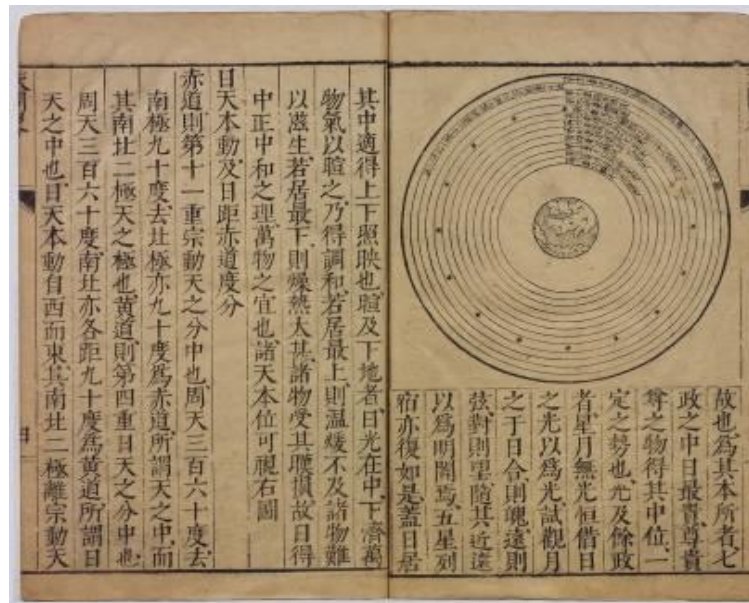 故也為其本所者七
政之中日最貴尊貴
尊之物得其中位一
定之勢也光及餘政
者星月無光恒借日
之光以為光試觀月
之于日合則魄遠則
弦對則望隨其近遠
以為明闇焉五星列
宿亦復如是蓋日居
其中適得上下照映也暄及下地者日光在中下濟萬
物氣以暄之乃得調和若居最上則溫煖不及諸物難
以滋生若居最下則燥熱太甚諸物受其㬠損故日得
中正中和之理萬物之宜也諸天本位可視右圖
日天本動及日距赤道度分
赤道則第十一重宗動天之分中也周天三百六十度去
南極九十度去北極亦九十度為赤道所謂天之中而
其南北二極天之極也黃道則第四重日天之分中也
周天三百六十度南北亦各距九十度為黃道所謂日
天之中也日天本動自西而東其南北二極離宗動天